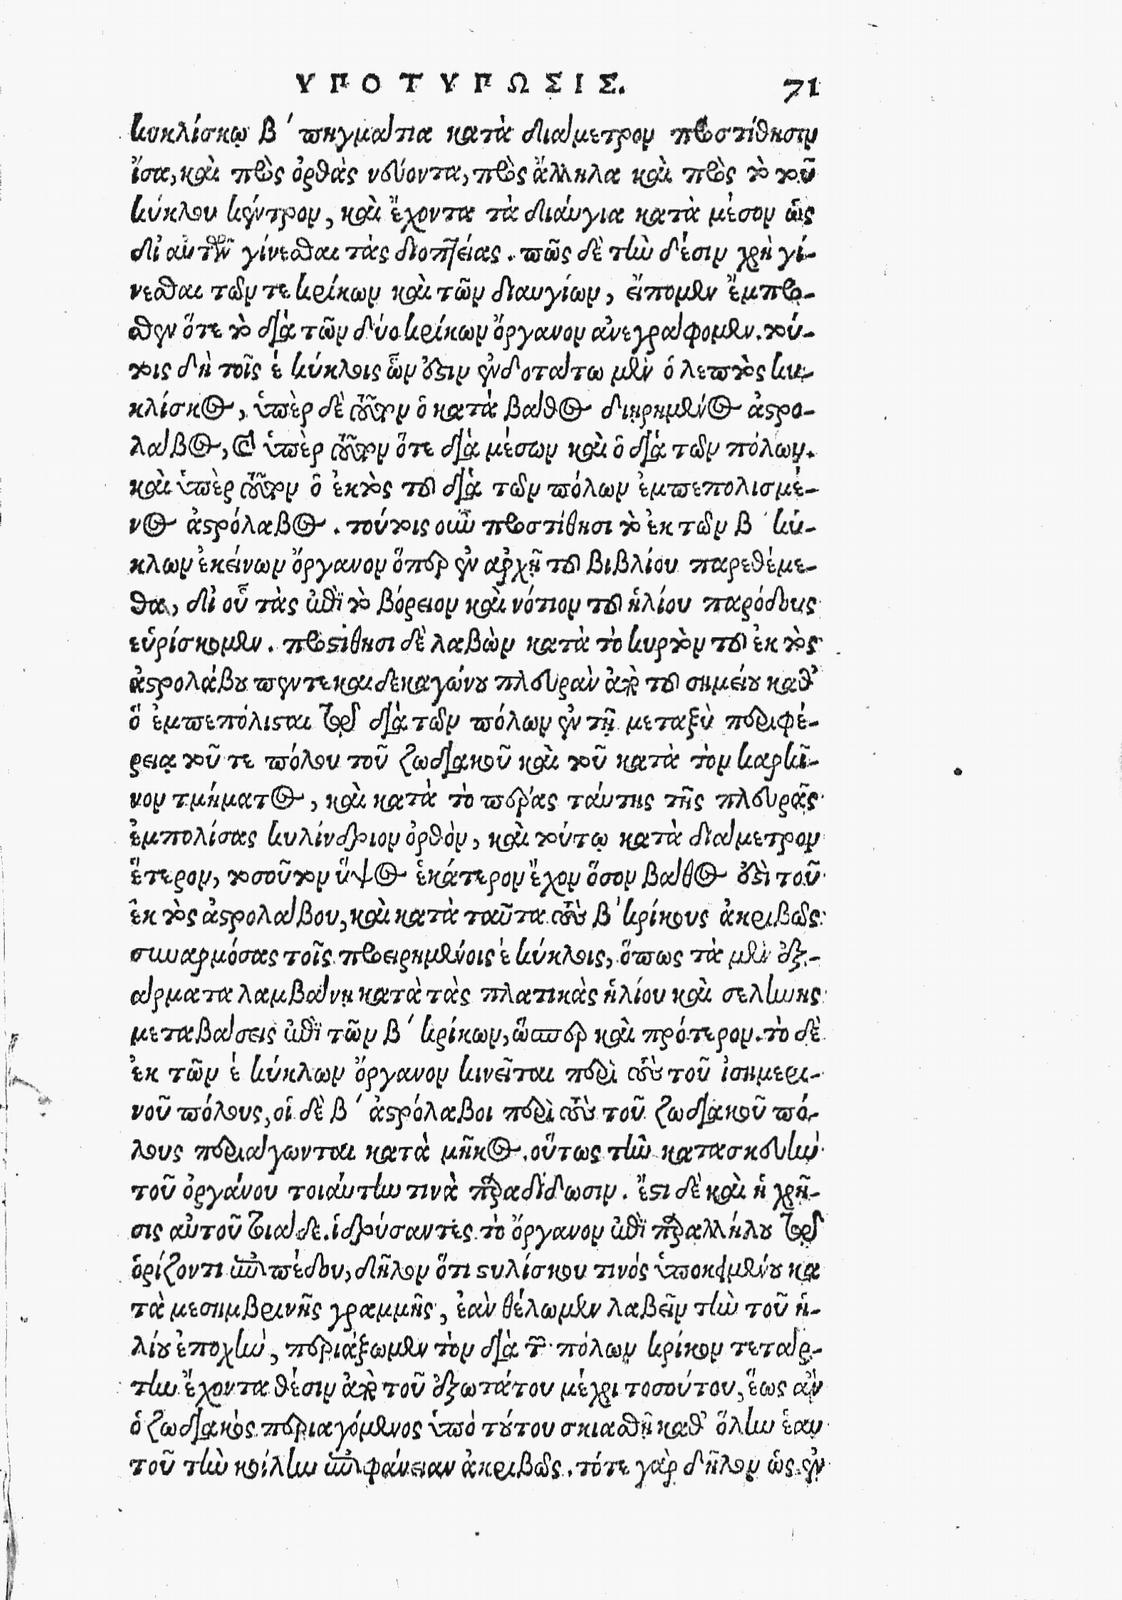 ΥΠΟΤΥΠΩΣΙΣ. 71
κυκλίσκῳ β΄ πηγμάτια κατὰ διάμετρον προστίθησιν
ἴσα, καὶ πρὸς ὀρθὰς νεύοντα, πρὸς ἄλληλα καὶ πρὸς τὸ τοῦ
κύκλου κέντρον, καὶ ἔχοντα τὰ διαύγια κατὰ μέσον ὡς
δι' αὐτῶν γίνεσθαι τὰς διοπτείας. πῶς δὲ τὴν θέσιν χρὴ γί-
νεσθαι τῶν τε κρίκων καὶ τῶν διαυγίων, εἴπομεν ἔμπρο-
σθεν ὅτε τὸ διὰ τῶν δύο κρίκων ὄργανον ἀνεγράφομεν. τού-
τοις δὴ τοῖς ἑ κύκλοις ὧν ἐστιν ἐνδοτάτω μὲν ὁ λεπτὸς κυ-
κλίσκος, ὑπὲρ δὲ τοῦτον ὁ κατὰ βάθος διῃρημένος ἀστρο-
λάβος, καὶ ὑπὲρ τοῦτον ὅτε διὰ μέσων καὶ ὁ διὰ τῶν πόλων.
καὶ ὑπὲρ τοῦτον ὁ ἐκτὸς τοῦ διὰ τῶν πόλων ἐμπεπολισμέ-
νος ἀστρόλαβος. τούτοις οὖν προστίθησι τὸ ἐκ τῶν β΄ κύ-
κλων ἐκείνων ὄργανον ὅπερ ἐν ἀρχῇ τοῦ βιβλίου παρεθέμε-
θα, δι' οὗ τὰς ἐπὶ τὸ βόρειον καὶ νότιον τοῦ ἡλίου παρόδους
εὑρίσκομεν. προστίθησι δὲ λαβὼν κατὰ τὸ κυρτὸν τοῦ ἐκτὸς
ἀστρολάβου πεντεκαιδεκαγώνου πλευρὰν ἀπὸ τοῦ σημείου καθ'
ὃ ἐμπεπόλισται τοῖς διὰ τῶν πόλων ἐν τῇ μεταξὺ περιφε-
ρείᾳ τοῦ τε πόλου τοῦ ζωδιακοῦ καὶ τοῦ κατὰ τὸν καρκῖ-
νον τμήματος, καὶ κατὰ τὸ πέρας ταύτης τῆς πλευρᾶς
ἐμπολίσας κυλίνδριον ὀρθὸν, καὶ τούτῳ κατὰ διάμετρον
ἕτερον, τοσοῦτον ὕψος ἑκάτερον ἔχον ὅσον βάθος ἐστὶ τοῦ
ἐκτὸς ἀστρολάβου, καὶ κατὰ ταῦτα τοὺς β΄ κρίκους ἀκριβῶς
συναρμόσας τοῖς προειρημένοις ἑ κύκλοις, ὅπως τὰ μὲν ἐξ-
άρματα λαμβάνῃ κατὰ τὰς πλατικὰς ἡλίου καὶ σελήνης
μεταβάσεις ἐπὶ τῶν β΄ κρίκων, ὥσπερ καὶ πρότερον. τὸ δὲ
ἐκ τῶν ἑ κύκλων ὄργανον κινεῖται περὶ τοὺς τοῦ ἰσημερι-
νοῦ πόλους, οἱ δὲ β΄ ἀστρόλαβοι περὶ τοὺς τοῦ ζωδιακοῦ πό-
λους περιάγωνται κατὰ μῆκος. οὕτως τὴν κατασκευὴν
τοῦ ὀργάνου τοιαύτην τινὰ παραδίδωσιν. ἔστι δὲ καὶ ἡ χρῆ-
σις αὐτοῦ τοιάδε. ἱδρύσαντες τὸ ὄργανον ἐπὶ παραλλήλου τῷ
ὁρίζοντι ἐπιπέδου, δῆλον ὅτι στυλίσκου τινὸς ὑποκειμένου κα
τὰ μεσημβρινῆς γραμμῆς, ἐὰν θέλωμεν λαβεῖν τὴν τοῦ ἡ-
λίου ἐποχὴν, περιάξωμεν τὸν διὰ τῶν πόλων κρίκον τετάρ-
την ἔχοντα θέσιν ἀπὸ τοῦ ἐξωτάτου μέχρι τοσούτου, ἕως ἂν
ὁ ζωδιακὸς περιαγόμενος ὑπὸ τούτου σκιασθῇ καθ' ὅλην ἑαυ
τοῦ τὴν κοίλην ἐπιφάνειαν ἀκριβῶς. τότε γὰρ δῆλον ὡς ἐν